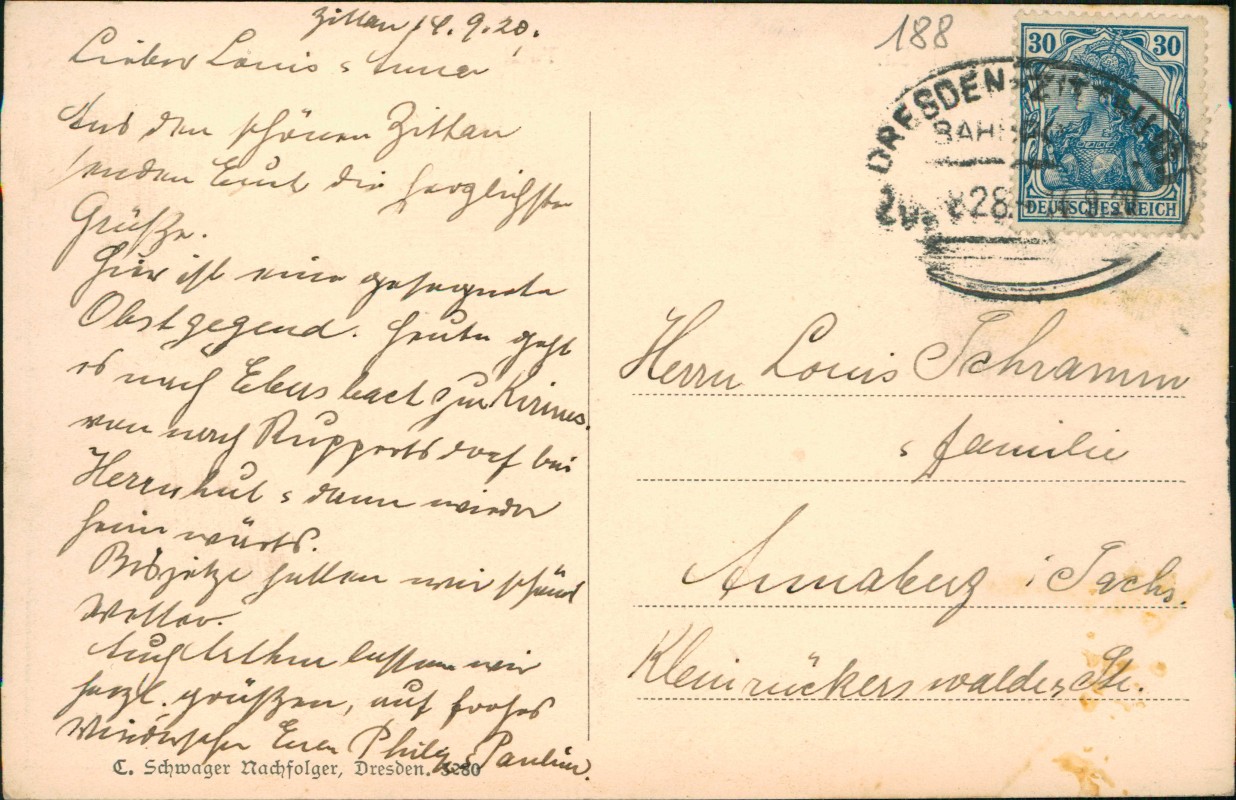 Zittau 14.9.20.
Lieber Louis u Anna
Aus den schönen Zittau
senden Euch die herzlichsten
Grüße.
Hier ist eine gesegnete
Obstgegend. Heute geht
es nach Ebersbach zur Kirmes.
von nach Ruppertsdorf bei
Herrnhut u dann wieder
heimwärts.
Bis jetzt hatten wir schönes
Wetter.
Auch Arthur lassen wir
herzl. grüßen, auf frohes
Wiedersehn Euer Philipp u Pauline.
C. Schwager Nachfolger, Dresden. 3280
188
30 30
DEUTSCHES REICH
DRESDEN-ZITTAU
BAHNPOST
Zug 828 14.9.20
Herrn Louis Schramm
u Familie
Annaberg i Sachs.
Kleinrückerswalder Str.